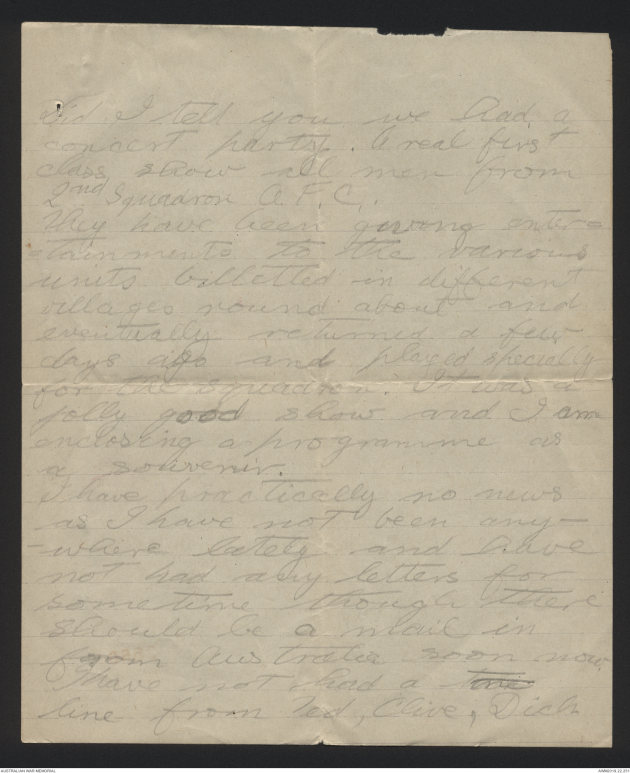 Did I tell you we had a
concert party. A real first
class show all men from
2nd Squadron A.F.C.
They have been giving enter=
=tainments to the various
units billetted in different
villages round about and
eventually returned a few
days ago and played specially
for the squadron. It was a
jolly good show and I am
enclosing a programme as
a souvenir.
I have practically no news
as I have not been any-
-where lately and have
not had any letters for
sometime though there
should be a mail in
from Australia soon now.
I have not had a
line from Ted, Clive, Dick
AUSTRALIAN WAR MEMORIAL